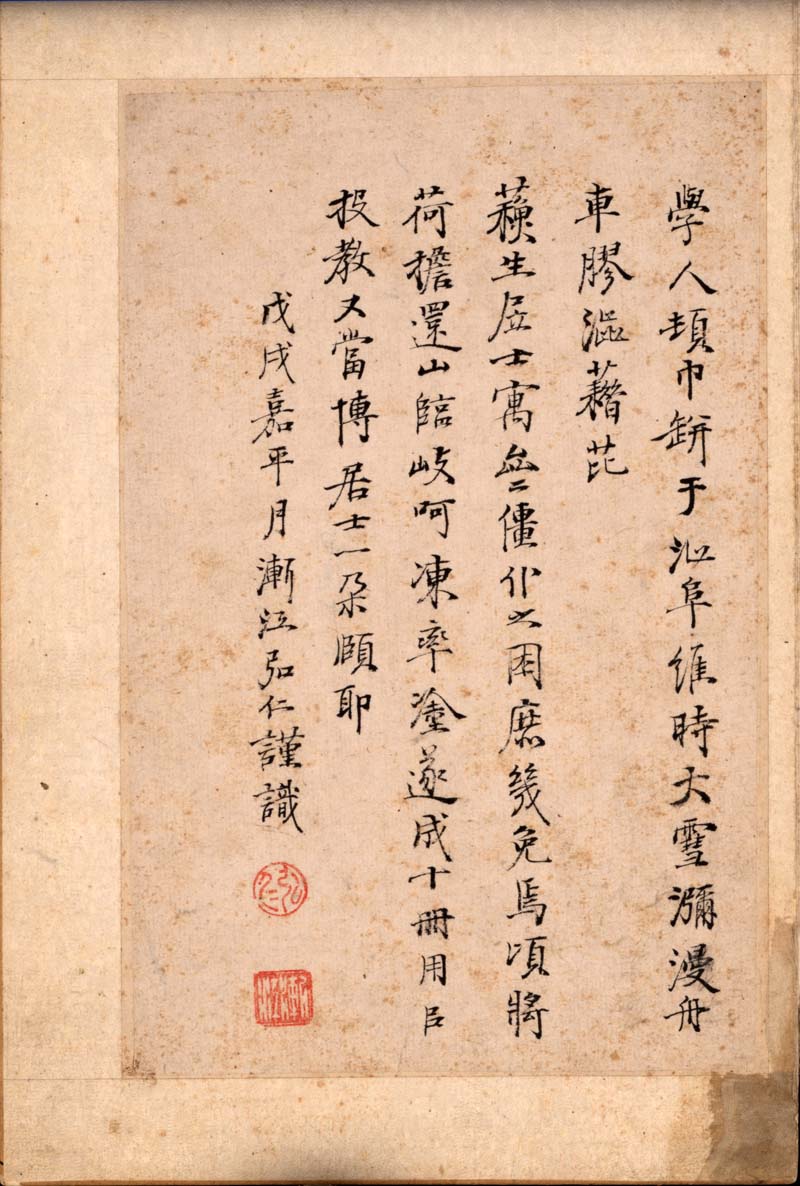 學人巾缾于阜維時大雪瀰漫舟
車膠澁藉芘
生居士寓僵仆之困庶幾免焉頃將
荷擔還山臨岐呵凍率塗遂成十冊用㠯
投教又當博居士一朵頤耶
戊戌嘉平月漸江弘仁謹識
弘仁
漸江